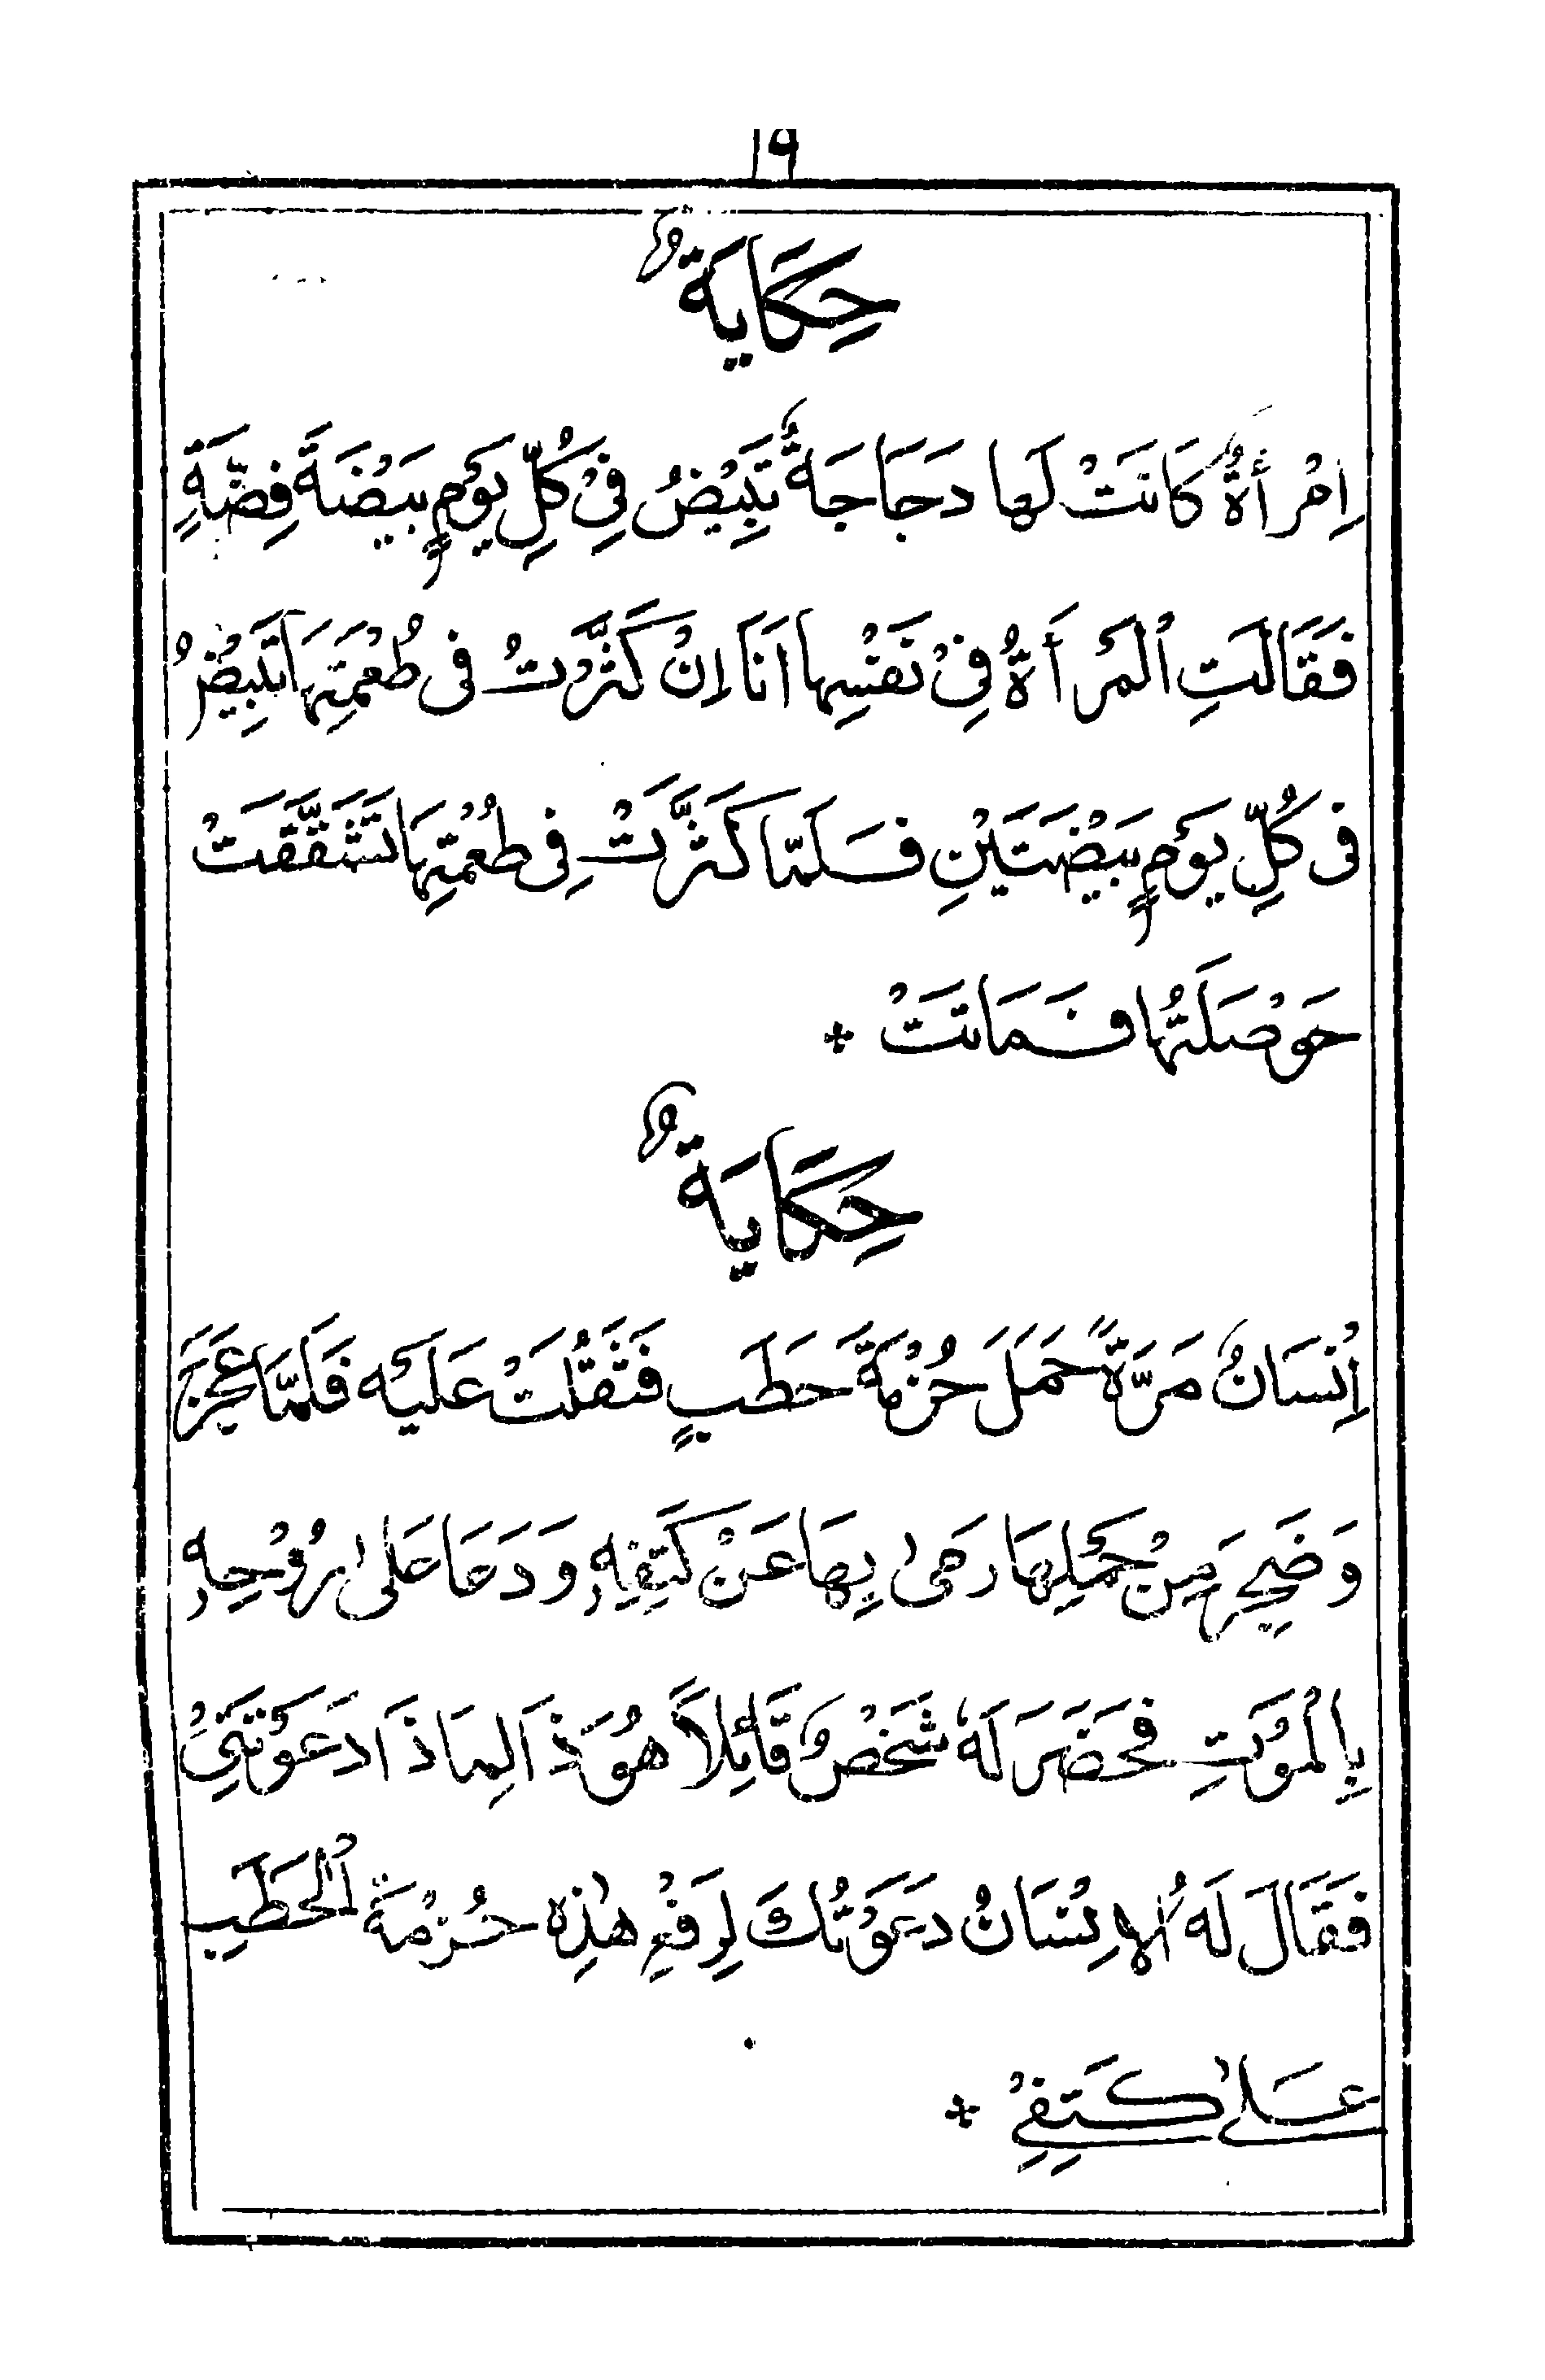 ١٩
حِكَايَةٌ
اِمْرأَةٌ كَانَتْ لَها دَجَاجَةٌ تَبِيْضُ فِيْ كُلِّ يَوْمٍ بَيْضَةَ فِضَّةٍ
فَقَالَتِ ٱلْمَرأَةُ فِيْ نَفْسِها اَنَا اِنْ كَثَّرْتُ فى طُعْمَتِهَا تَبِيْضُ
فى كُلِّ يَوْمٍ بَيْضَتَيْنِ فَلَمّا كَثَّرَتْ فِى طُعْمُتِهَا تَشَقَّقَتْ
حَوْصَلَتُها فَمَاتَتْ *
حِكَايَةٌ
اِنْسَانٌ مَرَّةً حَمَلَ حُزْمَةَ حَطَبٍ فَثَقُلَتْ عَلَيْه فَلَمَّا عَجِزَ
وَضَجِرَ مِنْ حَمْلِهَا رَمىٰ بِهَا عَنْ كَتِفِهٖ وَدَعَا عَلىٰ رُوْحِهٖ
بِالْمَوْتِ فَحَضَرَ لَهٗ شَخْصٌ قَائِلاً هُوَذَا لِمَاذَا دَعَوْتَنِيْ
فَقَالَ لَهُ ٱلاِنْسَانُ دَعَوْتُكَ لِرَفْعِ هٰذِهِ حُزْمَةَ ٱلْحَطَبِ
عَلىٰ كَتِفِيْ *